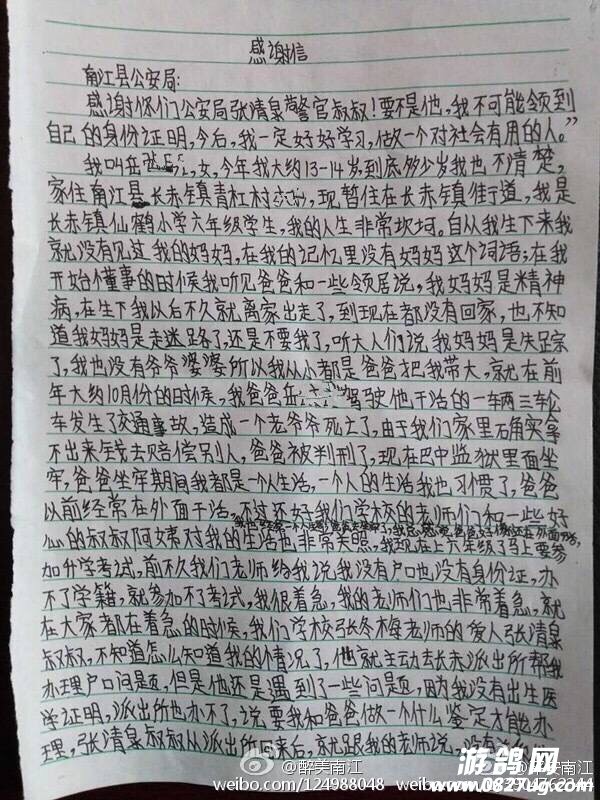 感谢信
南江县公安局:
感谢你们公安局张清泉警官叔叔!要不是他,我不可能领到
自己的身份证明,今后,我一定好好学习,做一个对社会有用的人。”
我叫岳 ,女,今年我大约13-14岁,到底多少岁我也不清楚,
家住南江县长赤镇青杠村 ,现暂住在长赤镇街道,我是
长赤镇仙鹤小学六年级学生,我的人生非常坎坷。自从我生下来我
就没有见过我的妈妈,在我的记忆里没有妈妈这个词语;在我
开始懂事的时候我听见爸爸和一些领居说,我妈妈是精神
病,在生下我以后不久就离家出走了,到现在都没有回家,也不知
道我妈妈是走迷路了,还是不要我了,听大人们说我妈妈是失踪
了,我也没有爷爷婆婆所以我从小都是爸爸把我带大,就在前
年大约10月份的时候,我爸爸岳 驾驶他干活的一车两三车轮
车发生了交通事故,造成一个老爷爷死亡了,由于我们家里 实拿
不出来钱去赔偿别人,爸爸被判刑了,现在巴中监狱里面坐
牢,爸爸坐牢期间我都是一个人生活,一个人的生活我也习惯了,爸爸
以前经常在外面干活。不过还好我们学校的老师们和一些好
心的叔叔阿姨对我的生活也非常关照,我现在上六年级了马上要参
加升学考试,前不久我们老师给我说我没有户口也没有身份证,办
不了学籍,就参加不了考试,我很着急,我的老师们也非常着急,就
在大家都在着急的时候,我们学校张冬梅老师的爱人张清泉
叔叔,不知道怎么知道我的情况了,他就主动去长赤派出所帮我
办理户口问题,但是他还是遇到了一些问题,因为我没有出生医
学证明,派出所也办不了,说要我和爸爸做一个什么鉴定才能办
理,张清泉叔叔从派出所回来后,就跟我的老师说,没有
@醉美南江
weibo.com/124988048
游鸽网
www.0827ug.com